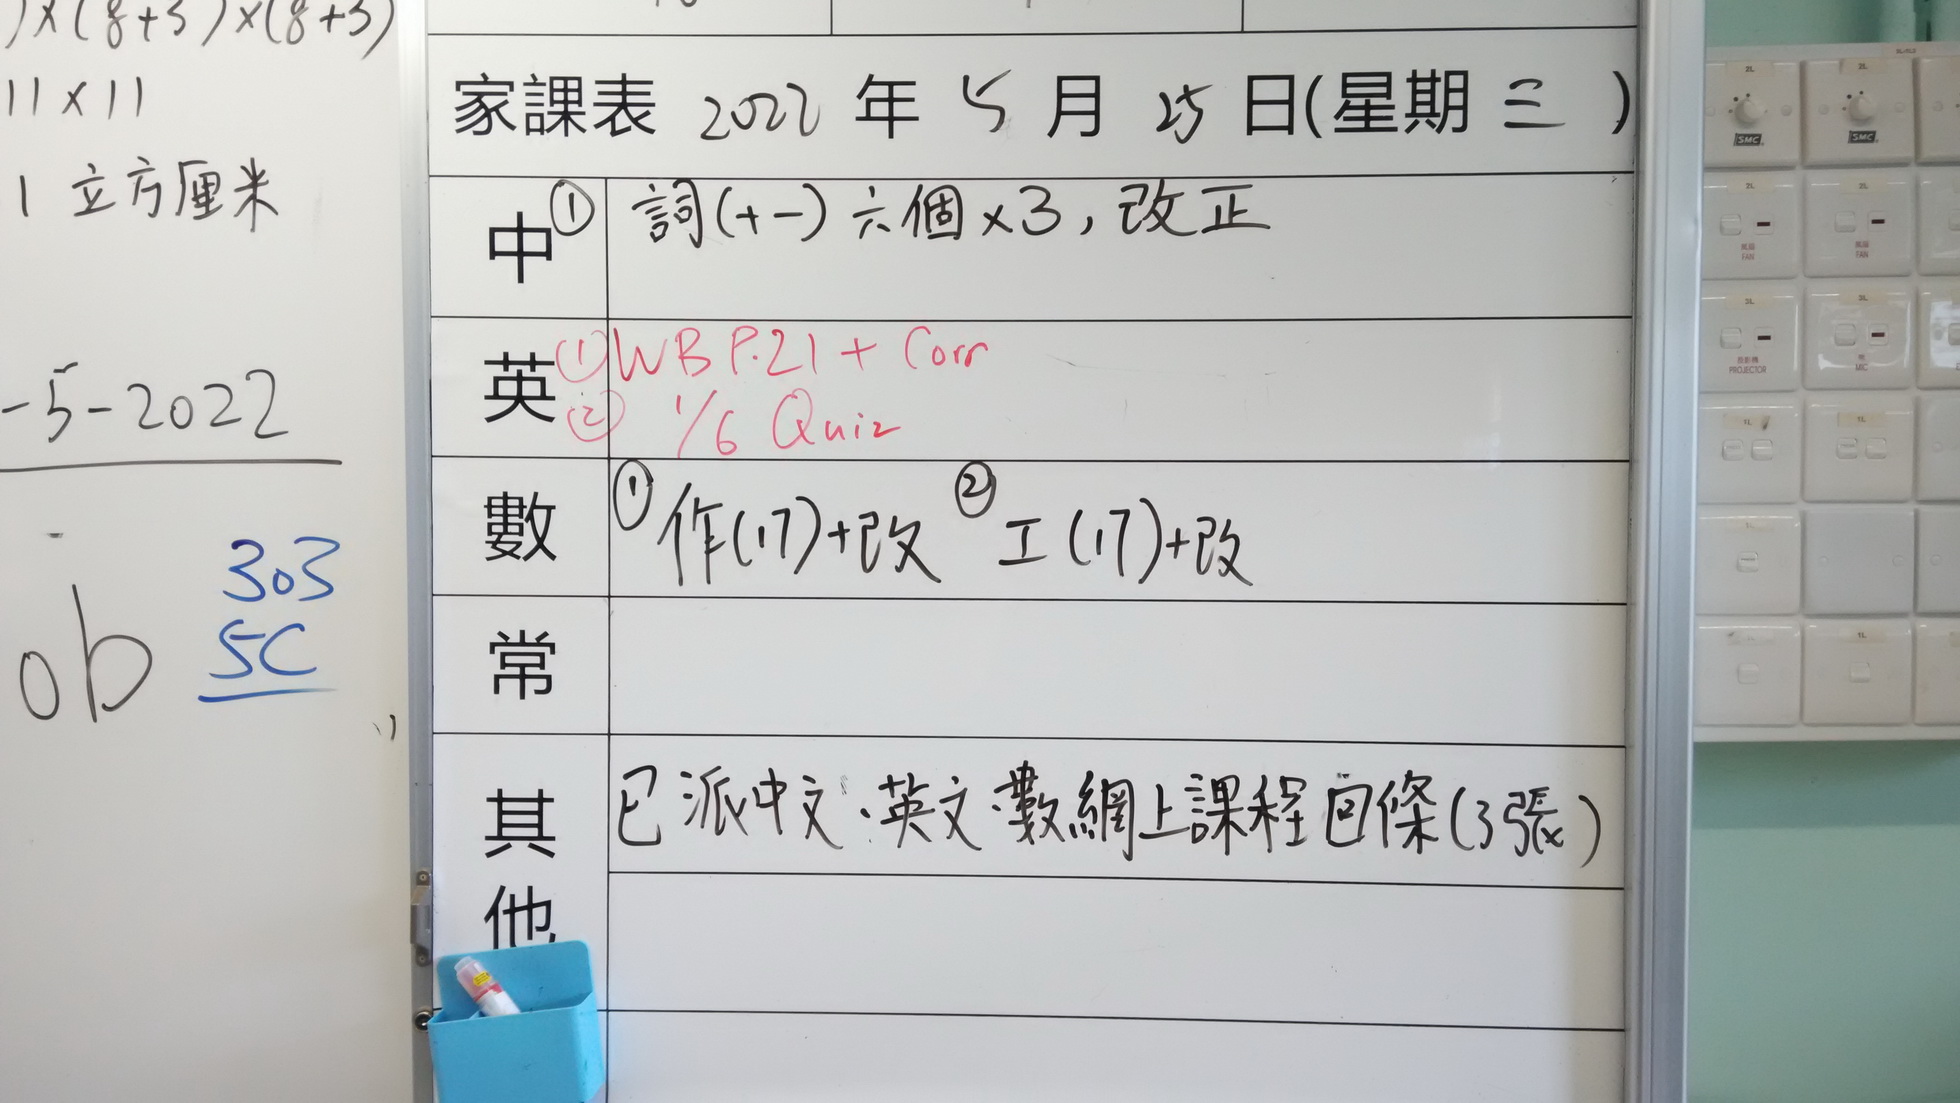 )×(8+3)×(8+3)
11×11
1 立方厘米
-5-2022
ob
303
5C
家課表 2022 年 5 月 25 日(星期 三 )
中 ① 詞(十一) 六個×3, 改正
英 ① WB P.21 + Corr
② 1/6 Quiz
數 ① 作(17)+改 ② 工(17)+改
常
其他 已派中文、英文、數網上課程回條(3張)
2L 2L
SMC SMC
2L 2L
風扇 風扇
FAN FAN
3L 3L
投影機 咪
PROJECTOR MIC
1L 1L
1L